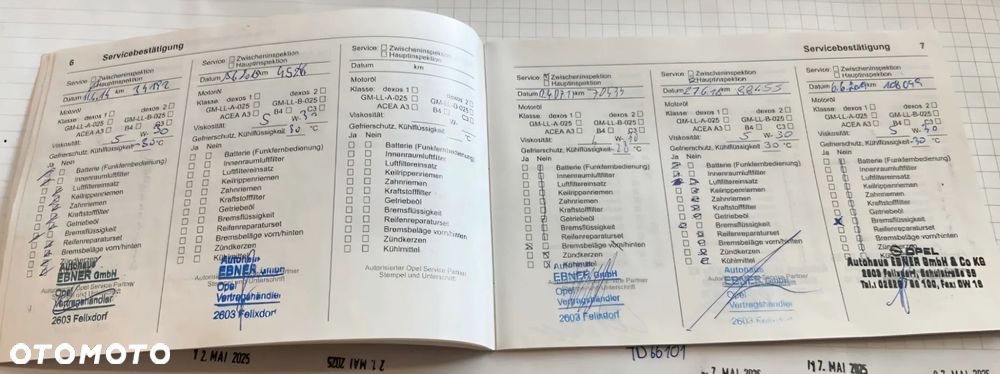 6
Servicebestätigung
Service: Zwischeninspektion
Hauptinspektion
Datum km
Motoröl
Klasse: dexos 1 dexos 2
GM-LL-A-025 GM-LL-B-025
ACEA A3 B4 C3
Viskosität: 5 W- 30
Gefrierschutz, Kühlflüssigkeit -30 °C
Ja Nein
Batterie (Funkfernbedienung)
Innenraumluftfilter
Luftfiltereinsatz
Keilrippenriemen
Zahnriemen
Kraftstofffilter
Getriebeöl
Bremsflüssigkeit
Reifenreparaturset
Bremsbeläge vorn/hinten
Zündkerzen
Kühlmittel
Autohaus
EBNER GmbH
Opel
Vertragshändler
2603 Felixdorf
Service: Zwischeninspektion
Hauptinspektion
Datum km
Motoröl
Klasse: dexos 1 dexos 2
GM-LL-A-025 GM-LL-B-025
ACEA A3 B4 C3
Viskosität: 5 W- 30
Gefrierschutz, Kühlflüssigkeit 30 °C
Ja Nein
Batterie (Funkfernbedienung)
Innenraumluftfilter
Luftfiltereinsatz
Keilrippenriemen
Zahnriemen
Kraftstofffilter
Getriebeöl
Bremsflüssigkeit
Reifenreparaturset
Bremsbeläge vorn/hinten
Zündkerzen
Kühlmittel
Autohaus
EBNER GmbH
Opel
Vertragshändler
2603 Felixdorf
Service: Zwischeninspektion
Hauptinspektion
Datum km
Motoröl
Klasse: dexos 1 dexos 2
GM-LL-A-025 GM-LL-B-025
ACEA A3 B4 C3
Viskosität: W-
Gefrierschutz, Kühlflüssigkeit °C
Ja Nein
Batterie (Funkfernbedienung)
Innenraumluftfilter
Luftfiltereinsatz
Keilrippenriemen
Zahnriemen
Kraftstofffilter
Getriebeöl
Bremsflüssigkeit
Reifenreparaturset
Bremsbeläge vorn/hinten
Zündkerzen
Kühlmittel
Autorisierter Opel Service Partner
Stempel und Unterschrift
Servicebestätigung
7
Service: Zwischeninspektion
Hauptinspektion
Datum km
Motoröl
Klasse: dexos 1 dexos 2
GM-LL-A-025 GM-LL-B-025
ACEA A3 B4 C3
Viskosität: W-
Gefrierschutz, Kühlflüssigkeit °C
Ja Nein
Batterie (Funkfernbedienung)
Innenraumluftfilter
Luftfiltereinsatz
Keilrippenriemen
Zahnriemen
Kraftstofffilter
Getriebeöl
Bremsflüssigkeit
Reifenreparaturset
Bremsbeläge vorn/hinten
Zündkerzen
Kühlmittel
Autohaus
EBNER GmbH
Opel
Vertragshändler
2603 Felixdorf
Service: Zwischeninspektion
Hauptinspektion
Datum km 88455
Motoröl
Klasse: dexos 1 dexos 2
GM-LL-A-025 GM-LL-B-025
ACEA A3 B4 C3
Viskosität: 5 W- 30
Gefrierschutz, Kühlflüssigkeit 30 °C
Ja Nein
Batterie (Funkfernbedienung)
Innenraumluftfilter
Luftfiltereinsatz
Keilrippenriemen
Zahnriemen
Kraftstofffilter
Getriebeöl
Bremsflüssigkeit
Reifenreparaturset
Bremsbeläge vorn/hinten
Zündkerzen
Kühlmittel
Autohaus
EBNER GmbH
Opel
Vertragshändler
2603 Felixdorf
Service: Zwischeninspektion
Hauptinspektion
Datum km
Motoröl
Klasse: dexos 1 dexos 2
GM-LL-A-025 GM-LL-B-025
ACEA A3 B4 C3
Viskosität: 5 W- 40
Gefrierschutz, Kühlflüssigkeit -30 °C
Ja Nein
Batterie (Funkfernbedienung)
Innenraumluftfilter
Luftfiltereinsatz
Keilrippenriemen
Zahnriemen
Kraftstofffilter
Getriebeöl
Bremsflüssigkeit
Reifenreparaturset
Bremsbeläge vorn/hinten
Zündkerzen
OPEL
Autohaus EBNER GmbH & Co KG
2603 Felixdorf, Schulstraße
OTOMOTO
12. MAI 2025
MAI 2025
7. MAI 2025
17. MAI 2025